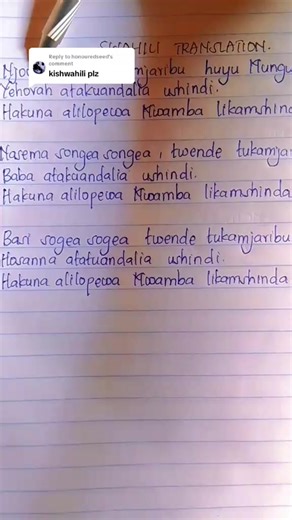 Reply to honouredseed's
comment
kishwahili plz
SWAHILI TRANSLATION.
mjaribu huyu Mungu
Yehovah atakuandalia ushindi.
Hakuna alilopewa Kwamba likamshinda
Nasema songea songea, twende tukamjar
Baba atakuandalia ushindi.
Hakuna alilopewa Kwamba likamshinda
Basi sogea sogea twende tukamjaribu
Hosanna atatuandalia ushindi.
Hakuna alilopewa Kwamba likamshinda